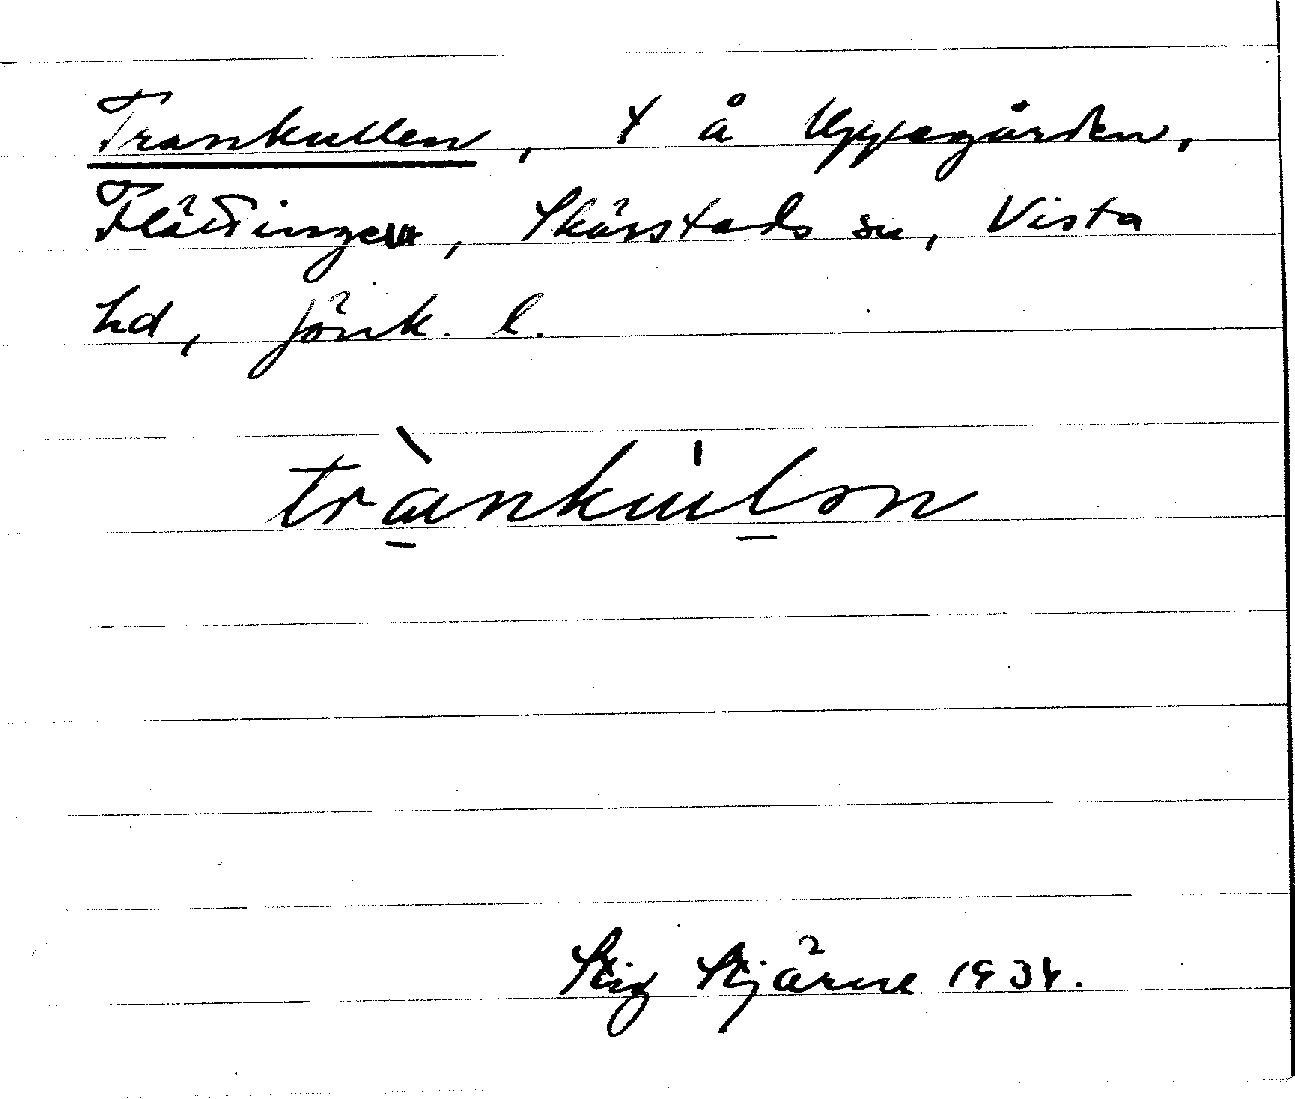 Trankullen, t å Uppegården,
Flättinge, Skärstads sn, Vista
hd, Jönk. l.
trànkúlən
Stig Stjärne 1934.